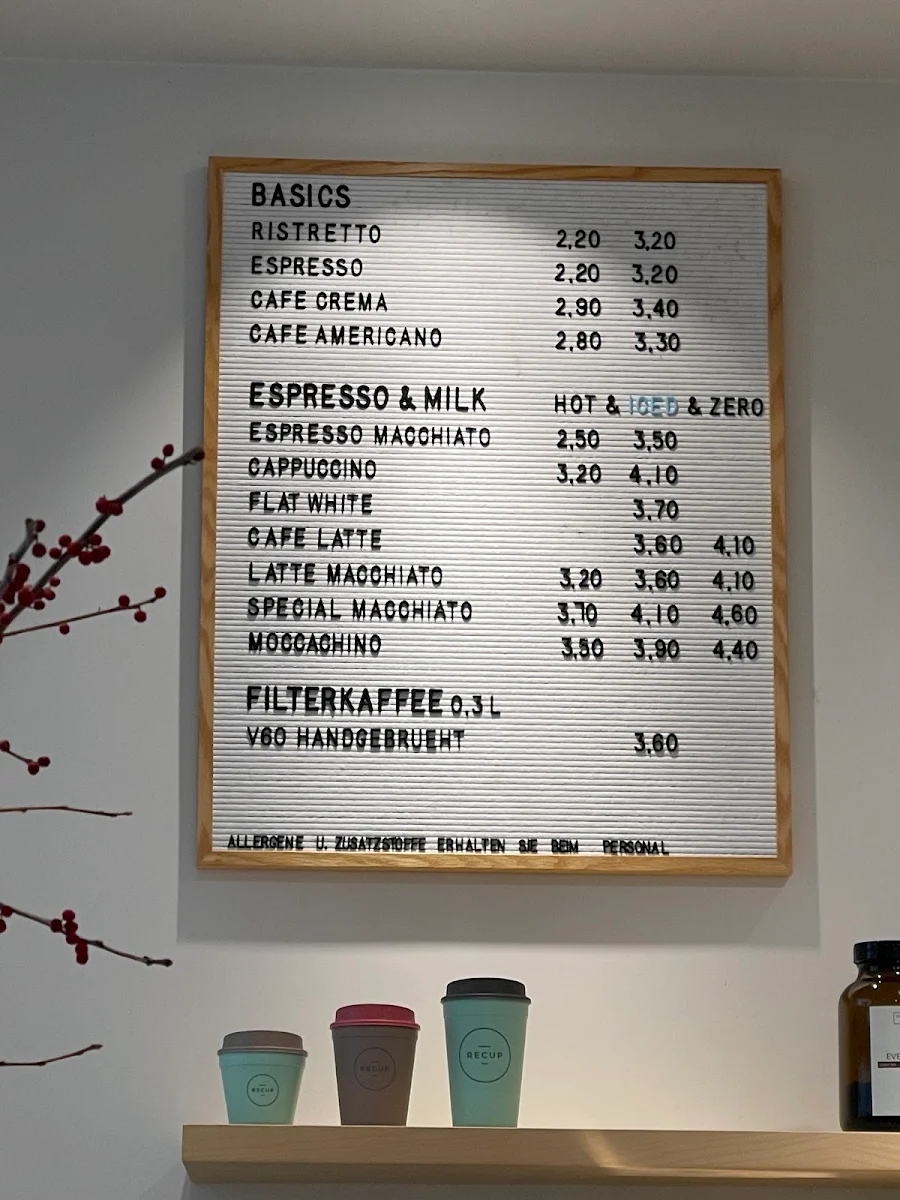 BASICS
RISTRETTO 2,20 3,20
ESPRESSO 2,20 3,20
CAFE CREMA 2,90 3,40
CAFE AMERICANO 2,80 3,30
ESPRESSO & MILK HOT & ICED & ZERO
ESPRESSO MACCHIATO 2,50 3,50
CAPPUCCINO 3,20 4,10
FLAT WHITE 3,70
CAFE LATTE 3,60 4,10
LATTE MACCHIATO 3,20 3,60 4,10
SPECIAL MACCHIATO 3,70 4,10 4,60
MOCCACHINO 3,50 3,90 4,40
FILTERKAFFEE 0,3 L
V60 HANDGEBRUEHT 3,60
ALLERGENE U. ZUSATZSTOFFE ERHALTEN SIE BEIM PERSONAL
RECUP
RECUP
RECUP